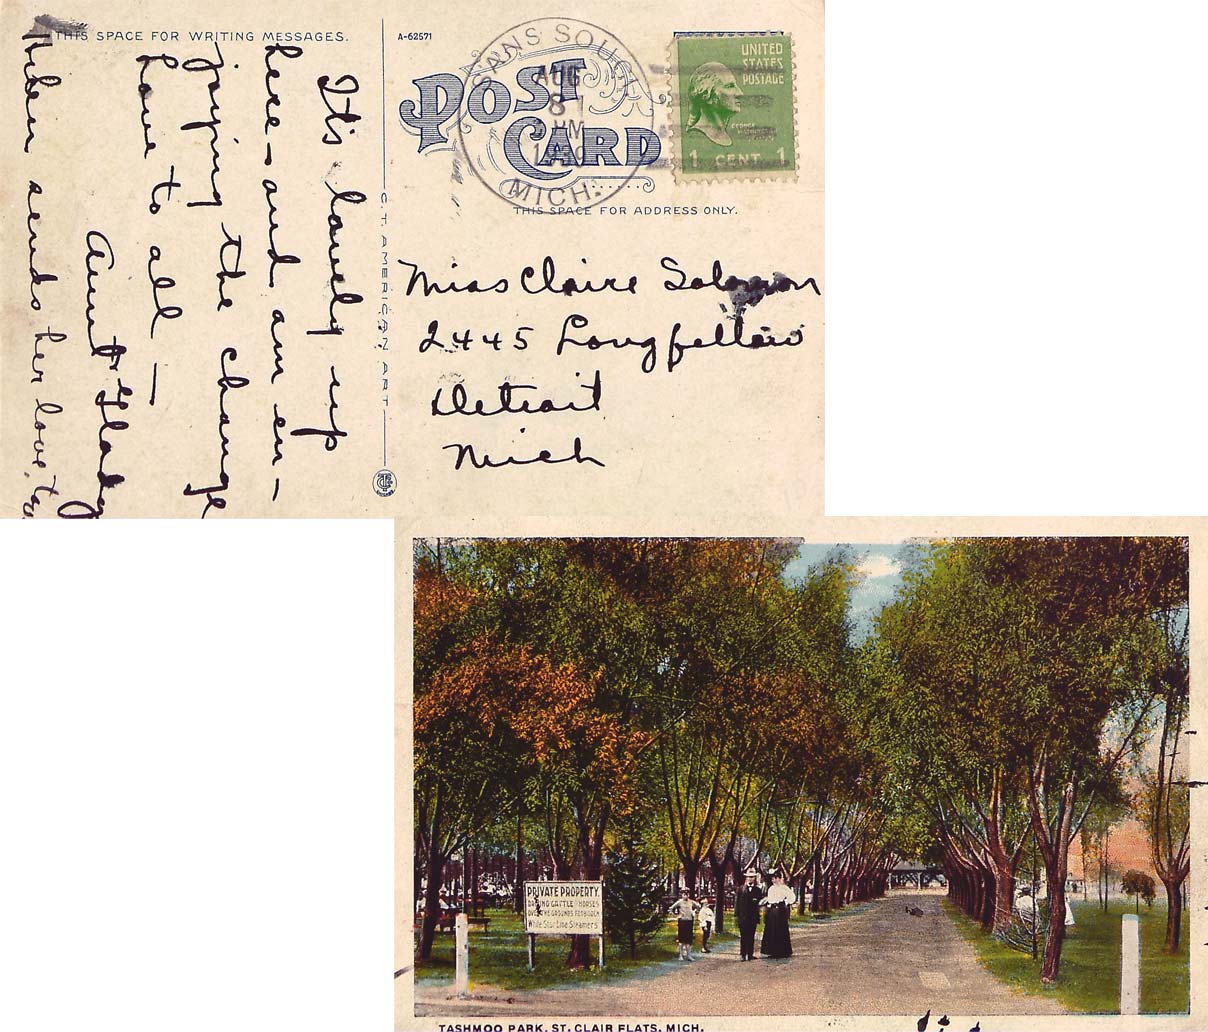 THIS SPACE FOR WRITING MESSAGES.
It's lovely up
here - and am en-
joying the change
Love to all -
Aunt Gladys
Helen sends her love, too
C. T. AMERICAN ART
A-62571
POST CARD
SANS SOUCI
AUG
8
PM
1939
MICH.
UNITED
STATES
POSTAGE
GEORGE
WASHINGTON
1 CENT 1
THIS SPACE FOR ADDRESS ONLY.
Miss Claire Solomon
2445 Longfellow
Detroit
Mich
PRIVATE PROPERTY.
DRIVING CATTLE HORSES
OVER THE GROUNDS FORBIDDEN
White Star Line Steamers
TASHMOO PARK, ST. CLAIR FLATS, MICH.